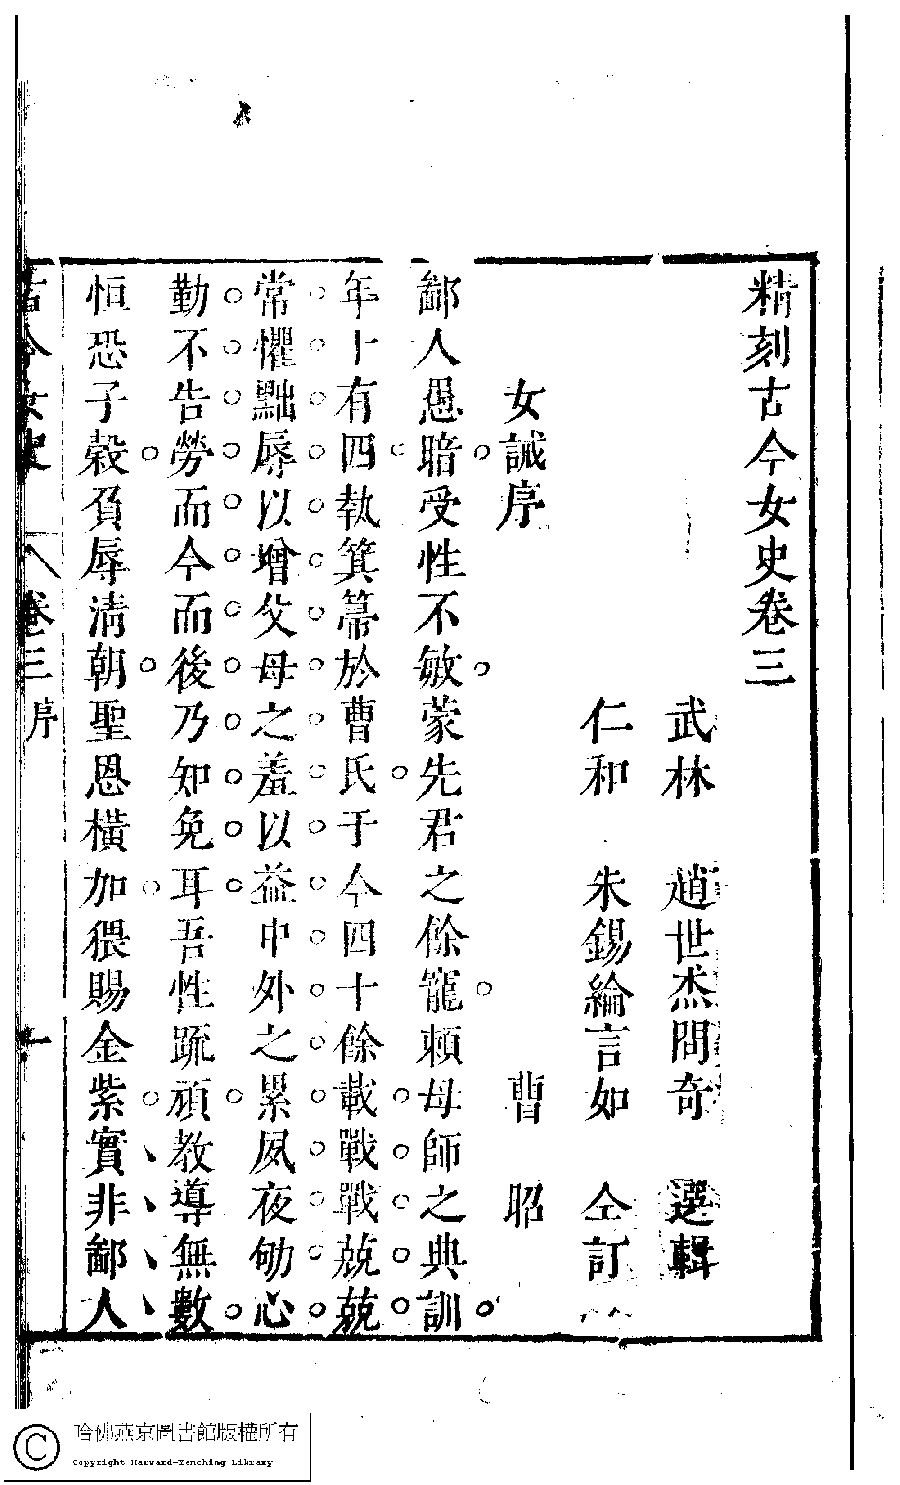 精刻古今女史卷三
武林 趙世杰問奇 選輯
仁和 朱錫綸言如 仝訂
女誡序 曹 昭
鄙人愚暗受性不敏蒙先君之餘寵賴母師之典訓
年十有四執箕箒於曹氏于今四十餘載戰戰兢兢
常懼黜辱以增父母之羞以益中外之累夙夜劬心
勤不告勞而今而後乃知免耳吾性踈頑教導無數
恒恐子穀負辱清朝聖恩橫加猥賜金紫實非鄙人
古今女史 卷三序 一
哈佛燕京圖書館版權所有
Copyright Harvard-Yenching Library